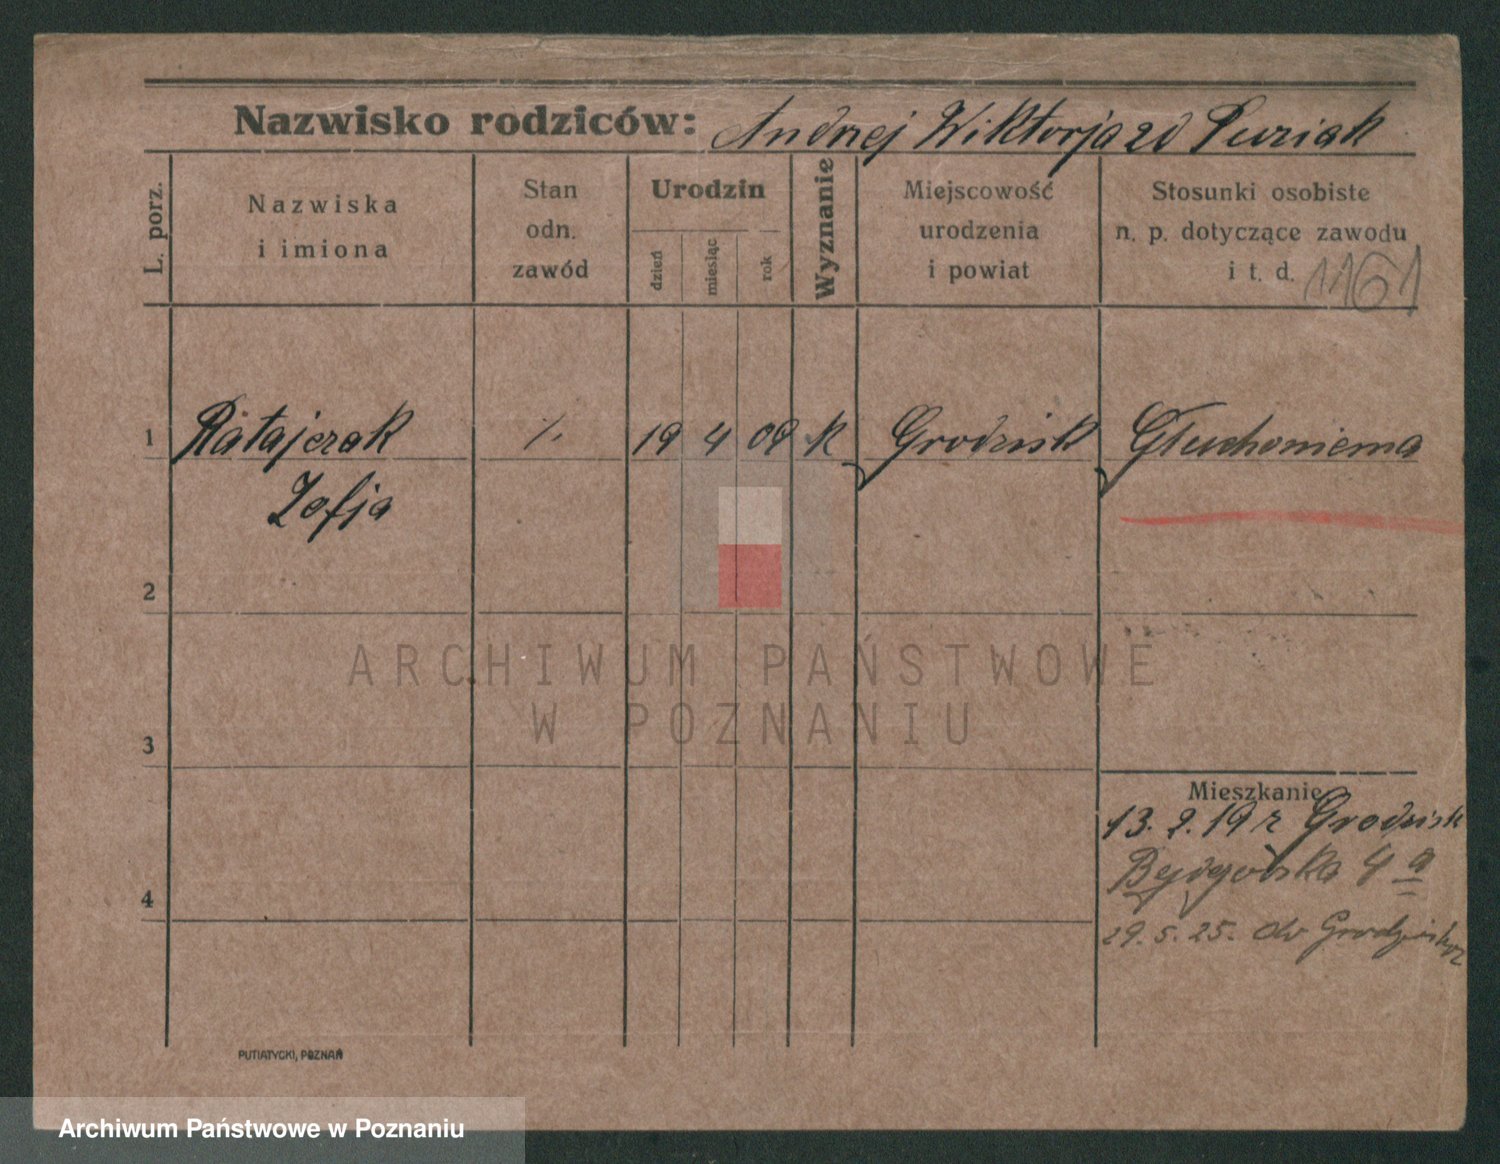 Nazwisko rodziców: Andrzej Wiktorja zd Puziak
L. porz.
Nazwiska
i imiona
Stan
odn.
zawód
Urodzin
dzień
miesiąc
rok
Wyznanie
Miejscowość
urodzenia
i powiat
Stosunki osobiste
n. p. dotyczące zawodu
i t. d. 1161
1 Ratajczak 19 4 08 k Grodzisk Głuchoniema
Zofja
2
3
4
Mieszkanie
13. 2. 19 r Grodzisk
Bydgoska 4 a
29. 5. 25. do Grodziska
PUTIATYCKI, POZNAŃ
ARCHIWUM PAŃSTWOWE
W POZNANIU
Archiwum Państwowe w Poznaniu